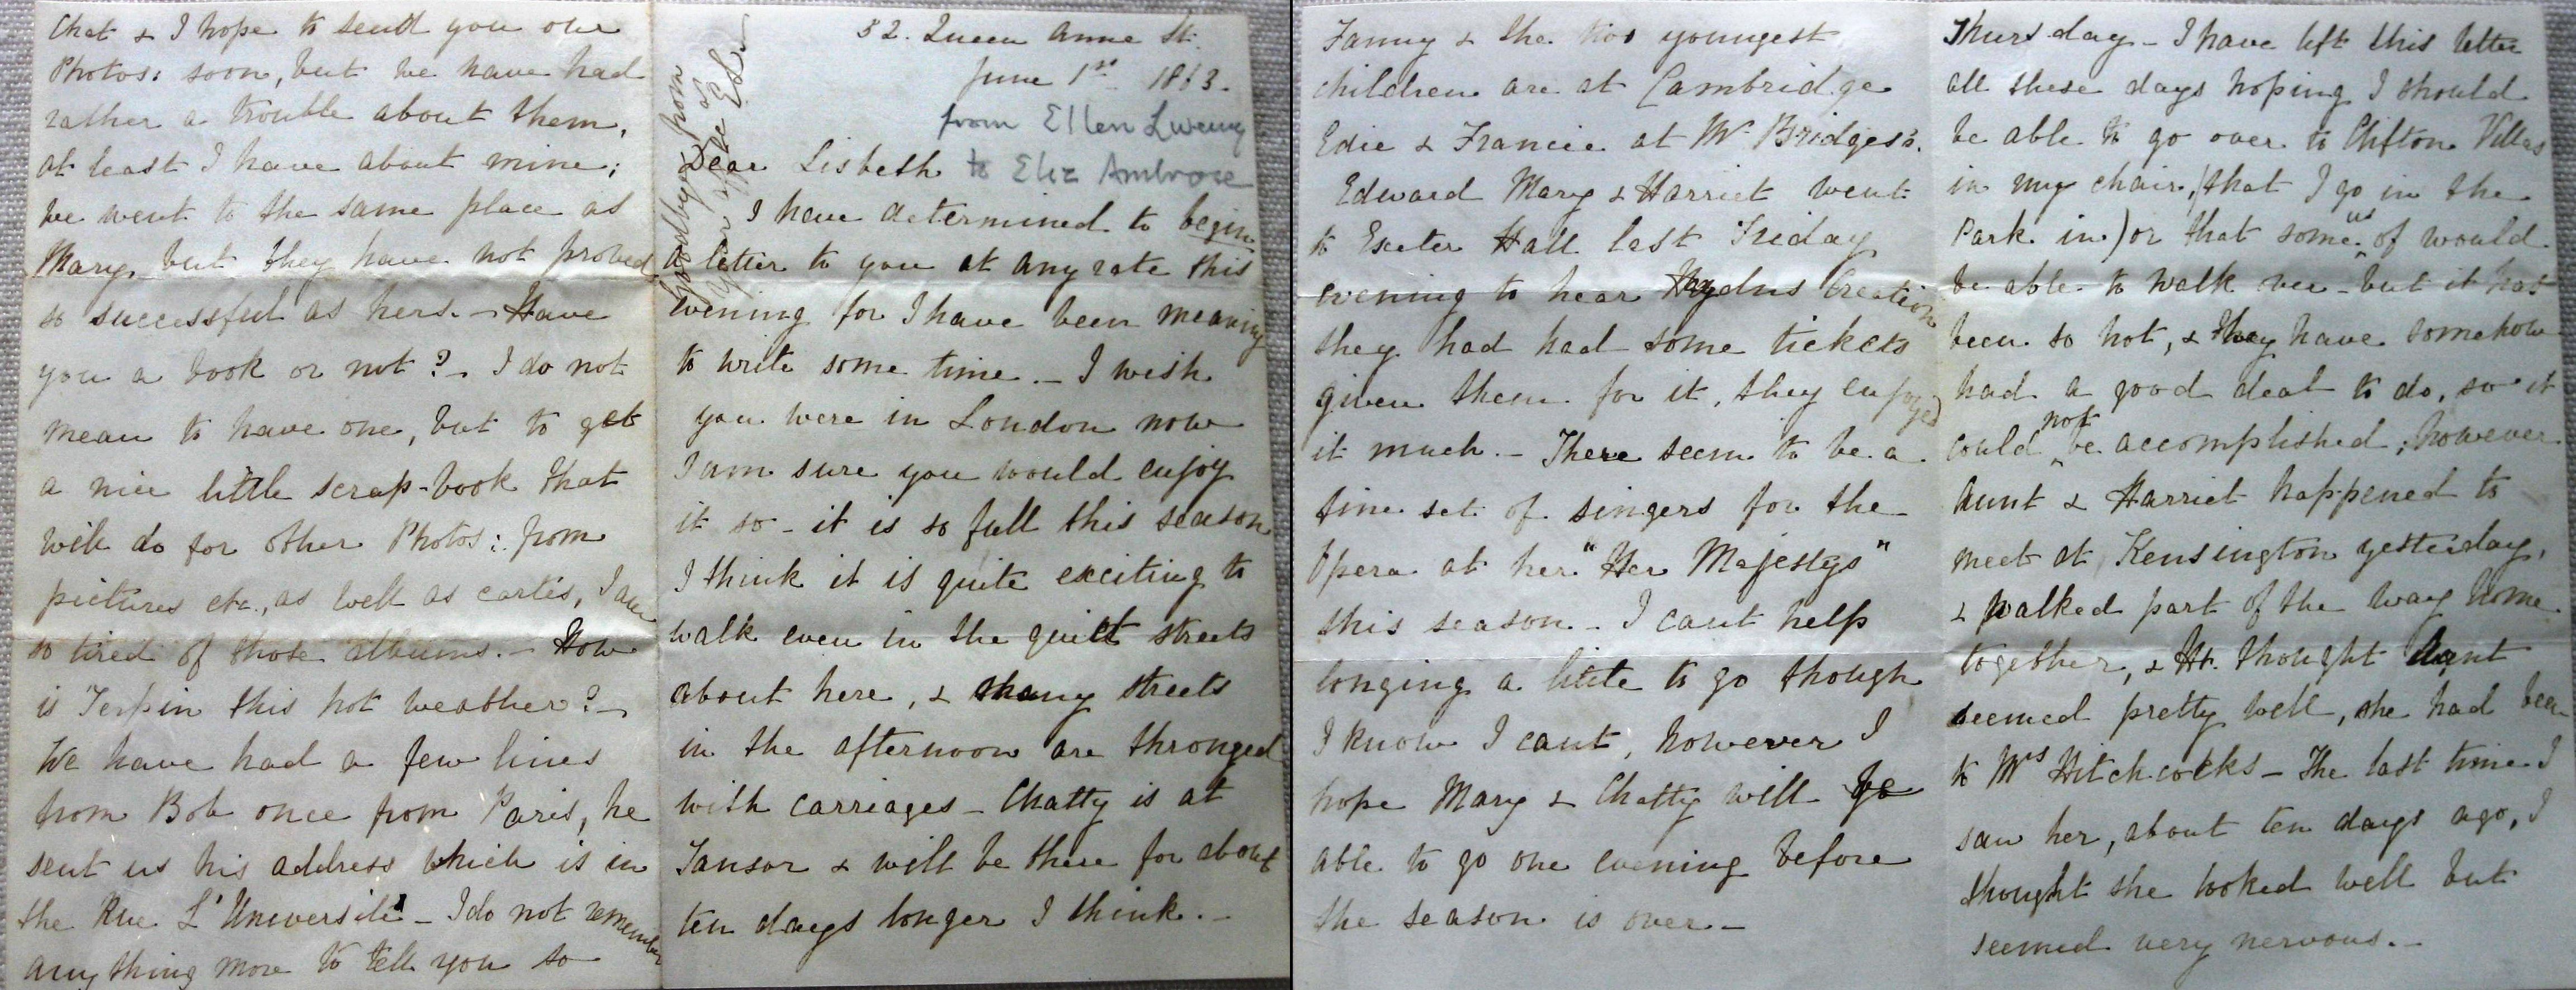 32. Queen Anne St.
June 1st 1863.
from Ellen
to Eliz Ambrose
Dear Lisbeth
I have determined to begin
a letter to you at any rate this
evening for I have been meaning
to write some time. – I wish
you were in London now
I am sure you would enjoy
it so – it is so full this season
I think it is quite exciting to
walk even in the quiet streets
about here, & many streets
in the afternoon are thronged
with carriages – Chatty is at
Tansor & will be there for about
ten days longer I think. –
Fanny & the two youngest
children are at Cambridge
Edie & Francie at Mr Bridges's.
Edward Mary & Harriet went
to Exeter Hall last Friday
evening to hear Haydns Creation
they had had some tickets
given them for it, they enjoyed
it much. – There seem to be a
fine set of singers for the
Opera at her "Her Majestys"
this season – I cant help
longing a little to go though
I know I cant, however I
hope Mary & Chatty will be
able to go one evening before
the season is over. –
Thursday – I have left this letter
all these days hoping I should
be able to go over to Clifton Villas
in my chair, (that I go in the
Park in) or that some us of would
be able to walk over – but it has
been so hot, & they have somehow
had a good deal to do, so it
could not be accomplished; however
Aunt & Harriet happened to
meet at Kensington yesterday,
& walked part of the way home
together, & Ht. thought Aunt
seemed pretty well, she had been
to Mrs Hitchcocks – The last time I
saw her, about ten days ago, I
thought she looked well but
seemed very nervous. –
Chat & I hope to send you our
Photos: soon, but we have had
rather a trouble about them,
at least I have about mine;
we went to the same place as
Mary, but they have not proved
so successful as hers. – Have
you a book or not? – I do not
mean to have one, but to get
a nice little scrap-book that
will do for other Photos: from
pictures etc., as well as cartes, I am
so tired of those albums. – How
is Terpin this hot weather? –
We have had a few lines
from Bob once from Paris, he
sent us his address which is in
the Rue L'Université – I do not remember
any thing more to tell you so
Goodbye from
your affec